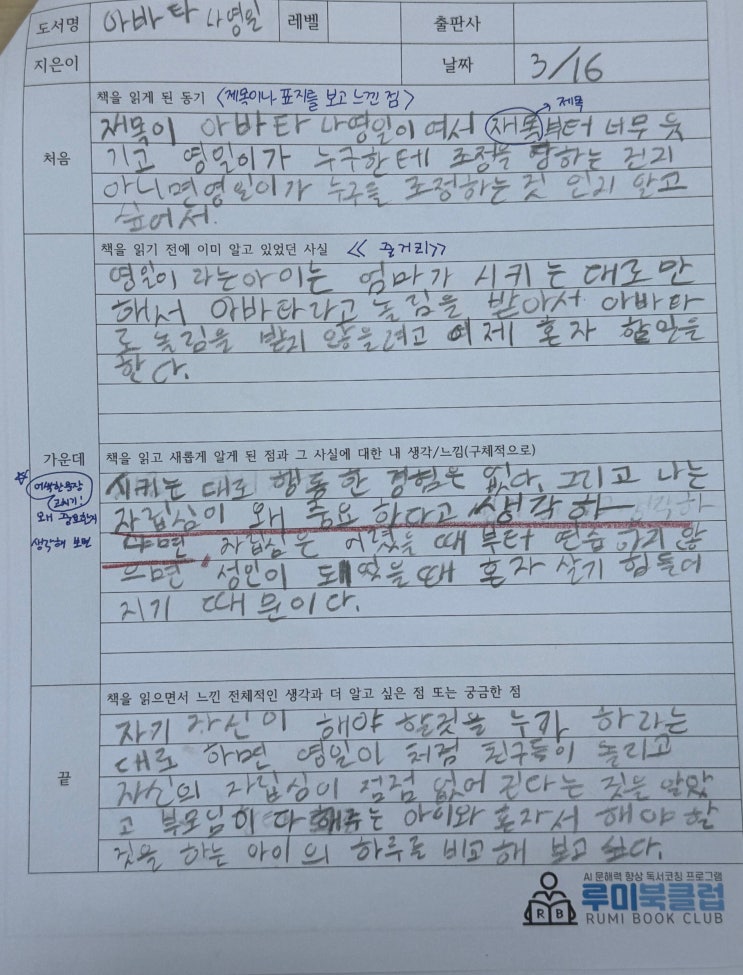 도서명 아바타 나영일 레벨 출판사
지은이 날짜 3/16
책을 읽게 된 동기 <제목이나 표지를 보고 느낀 점>
→제목
처음
재목이 아바타 나영일이여서 재목부터 너무 웃
기고 영일이가 누구한테 조정을 당하는 건지
아니면영일이가 누구를 조정하는 것 인지 알고
싶어서.
책을 읽기 전에 이미 알고 있었던 사실 << 줄거리>>
영일이 라는아이는 엄마가 시키는 대로만
해서 아바타라고 놀림을 받아서 아바타
로 놀림을 받지 않을려고 이제 혼자 할일을
한다.
가운데
책을 읽고 새롭게 알게 된 점과 그 사실에 대한 내 생각/느낌(구체적으로)
어색한 문장
고치기!
왜 중요한지
생각해 보면
시키는 대로 행동한 경험은 없다. 그리고 나는
자립심이 왜 중요 하다고 생각 하
냐면, 자립심은 어렸을 때 부터 연습 하지 않
으면 성인이 되었을때 혼자 살기 힘들어
지기 때문이다.
책을 읽으면서 느낀 전체적인 생각과 더 알고 싶은 점 또는 궁금한 점
끝
자기 자신이 해야 할것을 누가 하라는
대로 하면 영일이 처럼 친구들이 놀리고
자신의 자립심이 점점 없어 진다는 것을 알았
고 부모님이 다 해주는 아이와 혼자서 해야 할
것을 하는 아이의 하루를 비교해 보고 싶다.
AI 문해력 향상 독서코칭 프로그램
루미북클럽
RB RUMI BOOK CLUB